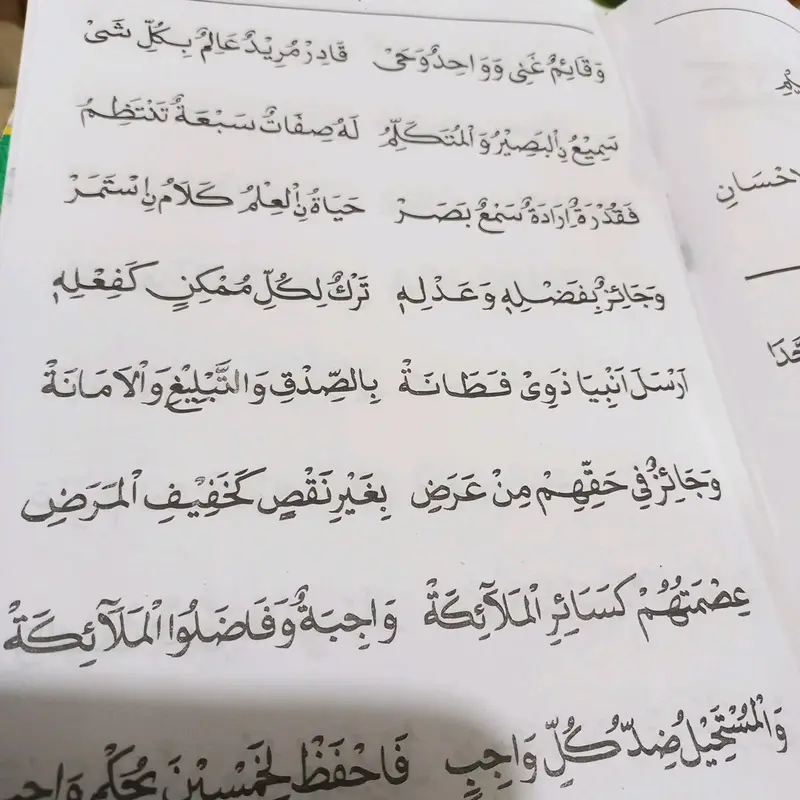 وَقَائِمٌ غَنِى وَوَاحِدٌ وَحَىّْ قَادِرْ مُرِيْدٌ عَالِمٌ بِكُلِّ شَىْ
سَمِيْعُ نِ الْبَصِيْرُ وَالْمُتَكَلِّمُ لَهُ صِفَاتٌ سَبْعَةٌ تَنْتَظِمُ
فَقُدْرَةٌ اِرَادَةٌ سَمْعٌ بَصَرْ حَيَاةُ نِ الْعِلْمُ كَلَامُ نِ اسْتَمَرْ
وَجَائِزٌ بِفَضْلِهِ وَعَدْلِهِ تَرْكٌ لِكُلِّ مُمْكِنٍ كَفِعْلِهِ
اَرْسَلَ اَنْبِيَا ذَوِىْ فَطَانَةْ بِالصِّدْقِ وَالتَّبْلِيْغِ وَالْاَمَانَةْ
وَجَائِزٌ فِى حَقِّهِمْ مِنْ عَرَضِ بِغَيْرِ نَقْصٍ كَخَفِيْفِ الْمَرَضِ
عِصْمَتُهُمْ كَسَائِرِ الْمَلَآئِكَةْ وَاجِبَةٌ وَفَاضَلُوا الْمَلَآئِكَةْ
وَالْمُسْتَحِيْلُ ضِدُّ كُلِّ وَاجِبِ فَاحْفَظْ لِخَمْسِيْنَ بِحُكْمٍ